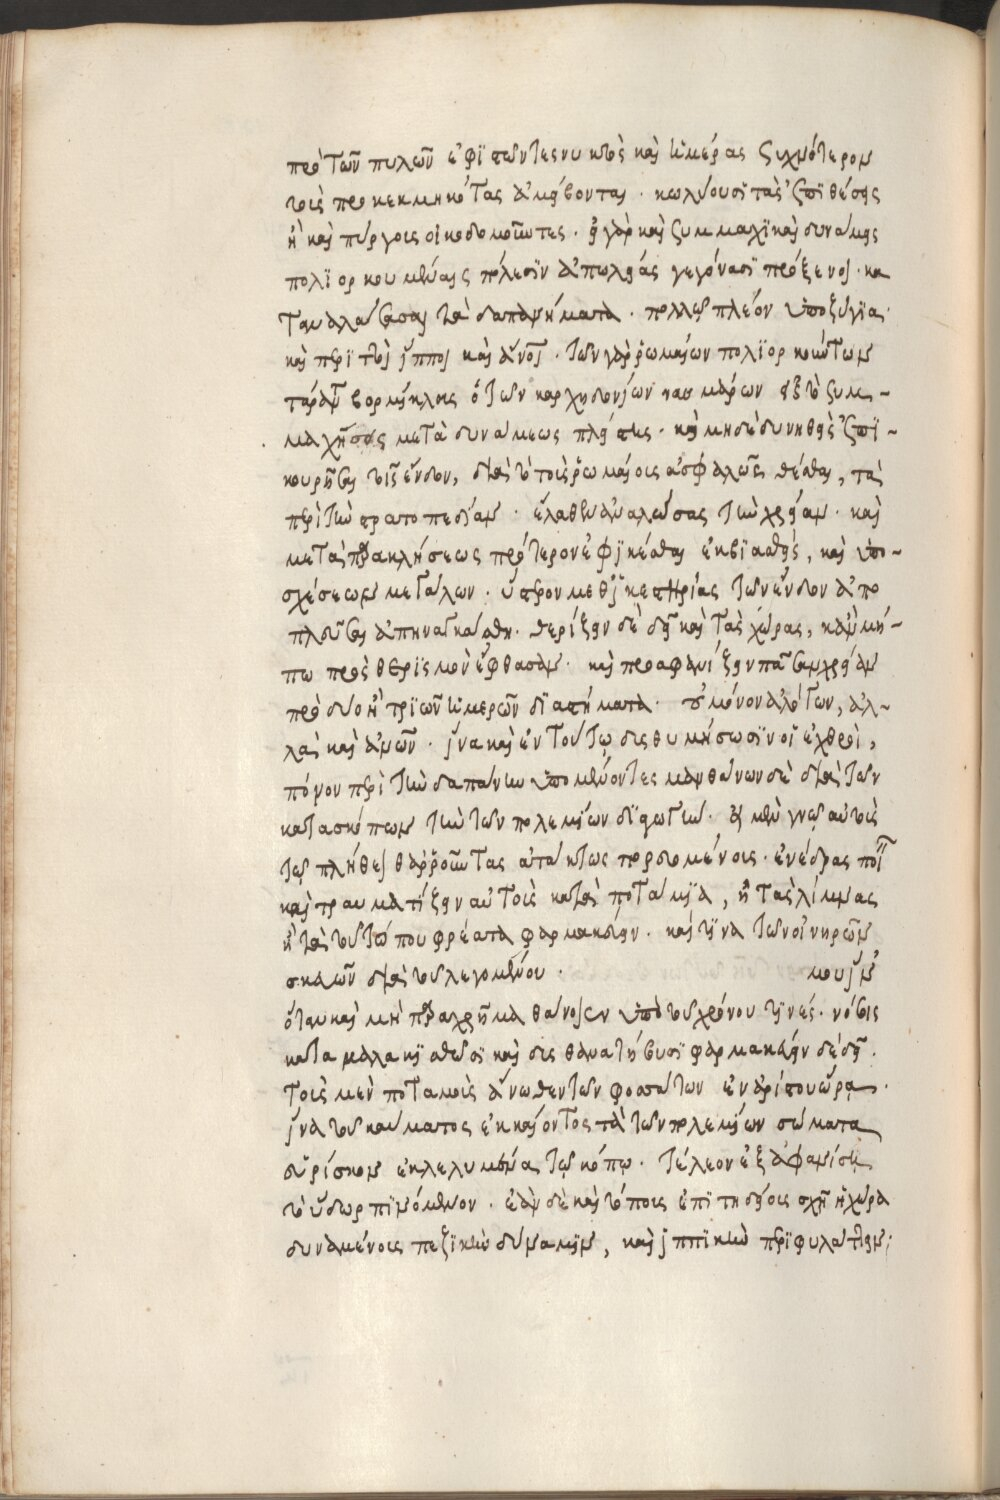 πρὸ τῶν πυλῶν ἐφιστῶντες νυκτὸς καὶ ἡμέρας συχνότερον
τοὺς προκεκμηκότας ἀμείβονται. κωλύουσι τὰς ἐπιθέσεις
ἢ καὶ πύργους οἰκοδομοῦντες. εἰ γὰρ καὶ ξυμμαχικαὶ δυνάμεις
πολιορκουμέναις πόλεσιν ἀπωλείας γεγόνασι πρόξενοι. κα
ταναλώσασαι τὰ δαπανήματα. πολλῷ πλέον ὑποζύγια.
καὶ περιττοὶ ἵπποι καὶ ἄνοι. τῶν γὰρ ῥωμαίων πολιορκούντων
βορμίλκας ὁ τῶν καρχηδονίων τὸ ξυμ-
μαχῆσαι μετὰ δυνάμεως πλείστης. καὶ μὴ δὲ δυνηθεὶς ἐπι-
κουρῆσαι τοῖς ἔνδον, διὰ τὸ τοὺς ῥωμαίους ἀσφαλῶς θέσθαι, τὰ
περὶ τὴν στρατοπεδίαν. ἔλαθεν ἀναλώσας τὴν χρείαν. καὶ
μετὰ παρακλήσεως πρότερον ἐφικέσθαι ἐκβιασθεὶς, καὶ ὑπο-
σχέσεων μεγάλων. ὕστερον μεθ' ἱκετηρίας τῶν ἔνδον ἀπο
πλεῦσαι ἀπηναγκάσθη. θερίζειν δὲ δεῖ καὶ τὰς χώρας, κἂν μή-
πω πρὸς θερισμὸν ἔφθασαν. καὶ προαφανίζειν πᾶσαν χρείαν
πρὸ δύο ἢ τριῶν ἡμερῶν διαστήματα. οὐ μόνον ἀλόγων, ἀλ-
λὰ καὶ ἀνῶν. ἵνα καὶ ἐν τούτῳ δυσθυμήσωσιν οἱ ἐχθροὶ,
πόνον περὶ τὴν δαπάνην ὑπομένοντες μανθάνων δὲ διὰ τῶν
κατασκόπων τὴν τῶν πολεμίων δίαιταν. εἰ μὲν γνῷ αὐτοὺς
τῷ πλήθει θαρροῦντας ἀτάκτως πορευομένους. ἐνέδρας ποι
καὶ τραυματίζειν αὐτοὺς κατὰ ποτάμια, ἢ τὰς λίμνας
ἢ τὰ τοῦ τόπου φρέατα φαρμακεύειν. καί τινα τῶν οἰνηρῶν
σκευῶν διὰ τοῦ λεγομένου.
ὅταν καὶ μὴ παραχρῆμα θάνωσιν ὑπὸ τοῦ χρόνου τινές. νόσοις
καταμαλακισθῶσι καὶ δυσθανατήσουσι φαρμακεύειν δὲ δεῖ.
τοὺς μὲν ποταμοὺς ἄνωθεν τῶν φοσσάτων ἐν ἀρίστου ὥρα.
ἵνα τοῦ καύματος ἐκκαίοντος τὰ τῶν πολεμίων σώματα
εὑρίσκον ἐκλελυμένα τῷ κόπῳ. τέλεον ἐξαφανίσῃ
τὸ ὕδωρ πινόμενον. ἐὰν δὲ καὶ τόπους ἐπιτηδείους σχῆ ἡ χώρα
δυναμένους πεζικὴν δύναμιν, καὶ ἱππικὴν περιφυλάττειν;